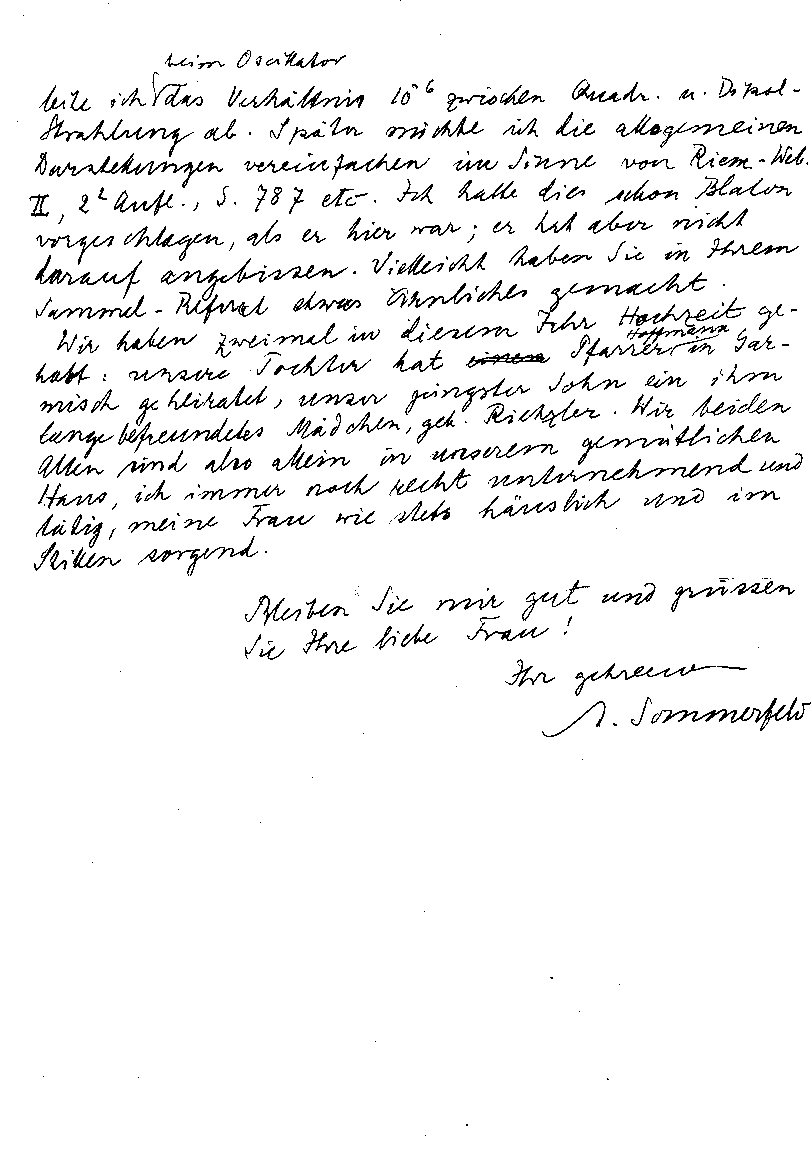 beim Oscillator
leite ich das Verhältnis 10⁶ zwischen Quadr. u. Dipol-
Strahlung ab. Später möchte ich die allgemeinen
Darstellungen vereinfachen im Sinne von Riem.-Web.
II, 2ᵗ Aufl., S. 787 etc. Ich hatte dies schon Blaton
vorgeschlagen, als er hier war; er hat aber nicht
darauf angebissen. Vielleicht haben Sie in Ihrem
Sammel-Referat etwas Ähnliches gemacht.
Wir haben zweimal in diesem Jahr Hochzeit ge-
habt: unsere Tochter hat einen Pfarrer Hoffmann in Gar-
misch geheiratet, unser jüngster Sohn ein ihm
lange befreundetes Mädchen, geb. Riezler. Wir beiden
Alten sind also allein in unserem gemütlichen
Haus, ich immer noch recht unternehmend und
tätig, meine Frau wie stets häuslich und im
Stillen sorgend.
Bleiben Sie mir gut und grüssen
Sie Ihre liebe Frau!
Ihr getreuer
A. Sommerfeld